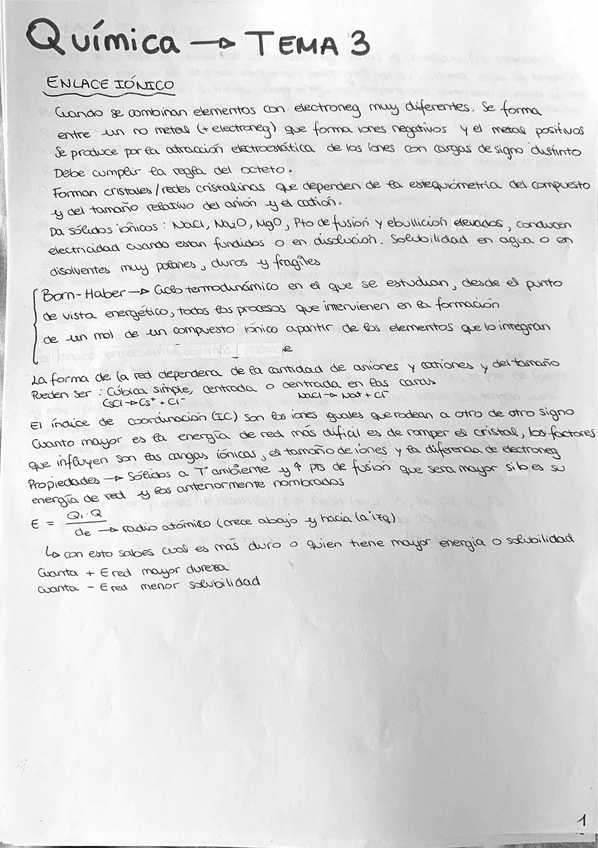 Química → TEMA 3
ENLACE IÓNICO
Cuando se combinan elementos con electroneg muy diferentes. Se forma
entre un no metal (+ electroneg) que forma iones negativos y el metal positivos
Se produce por la atracción electroestática de los iones con cargas de signo distinto
Debe cumplir la regla del octeto.
Forman cristales/redes cristalinas que dependen de la estequiometría del compuesto
y del tamaño relativo del anión y el catión.
Da sólidos iónicos: NaCl, Na2O, MgO, Pto de fusión y ebullición elevados, conducen
electricidad cuando estan fundidos o en disolución. Solubilidad en agua o en
disolventes muy polares, duros y fragiles
Born-Haber → Ciclo termodinámico en el que se estudian, desde el punto
de vista energético, todos los procesos que intervienen en la formación
de un mol de un compuesto iónico a partir de los elementos que lo integran
e
La forma de la red dependera de la cantidad de aniones y cationes y del tamaño
Pueden ser: Cúbica simple, centrada o centrada en las caras
CsCl → Cs+ + Cl- NaCl → Na+ + Cl-
El índice de coordinación (IC) son los iones iguales que rodean a otro de otro signo
Cuanto mayor es la energía de red más dificil es de romper el cristal, los factores
que influyen son las cargas iónicas, el tamaño de iones y la diferencia de electroneg
Propiedades → Sólidos a Tª ambiente y ↑ pts de fusión que sera mayor si lo es su
energía de red y los anteriormente nombrados
E = Q1·Q / de → radio atómico (crece abajo y hacia la izq)
↳ con esto sabes cual es más duro o quien tiene mayor energia o solubilidad
Cuanta + E red mayor dureza
Cuanta - E red menor solubilidad
1